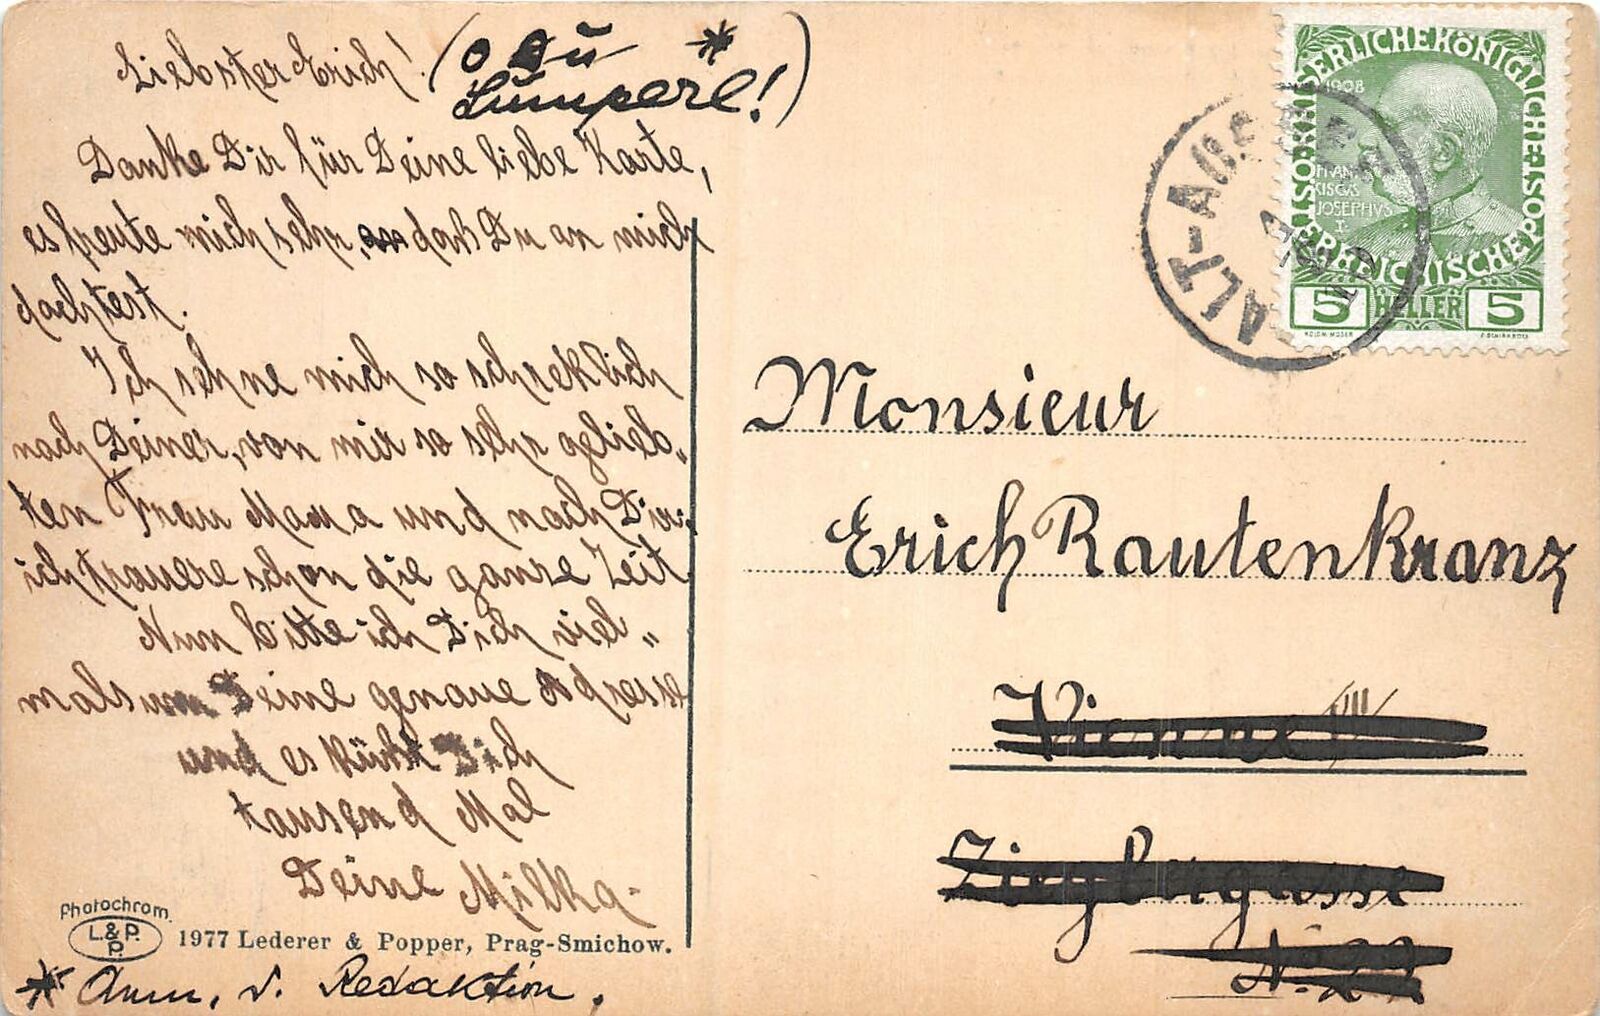 Liebster Erich! (o Du *
Lumperl!)
Danke Dir für Deine liebe Karte,
es freute mich sehr, daß Du an mich
dachtest.
Ich sehne mich so schreklich
nach Deiner, von mir so sehr gelieb„
ten Frau Mama und nach Dir.
ich trauere schon die ganze Zeit
Nun bitte ich Dich viel„
mals um Deine genaue Adresse
und es küßt Dich
tausend Mal
Deine Milka.
Photochrom.
L.&P.
P.
1977 Lederer & Popper, Prag-Smichow.
* Anm. d. Redaktion.
KAISERLICHE KÖNIGLICHE
ÖSTERREICHISCHE POST
1908
FRAN
CISCVS
JOSEPHVS
I.
5 HELLER 5
KOLOM. MOSER
F. SCHIRNBÖCK
ALT-AUSSEE
Monsieur
Erich Rautenkranz
Vienne VII
Zieglergasse